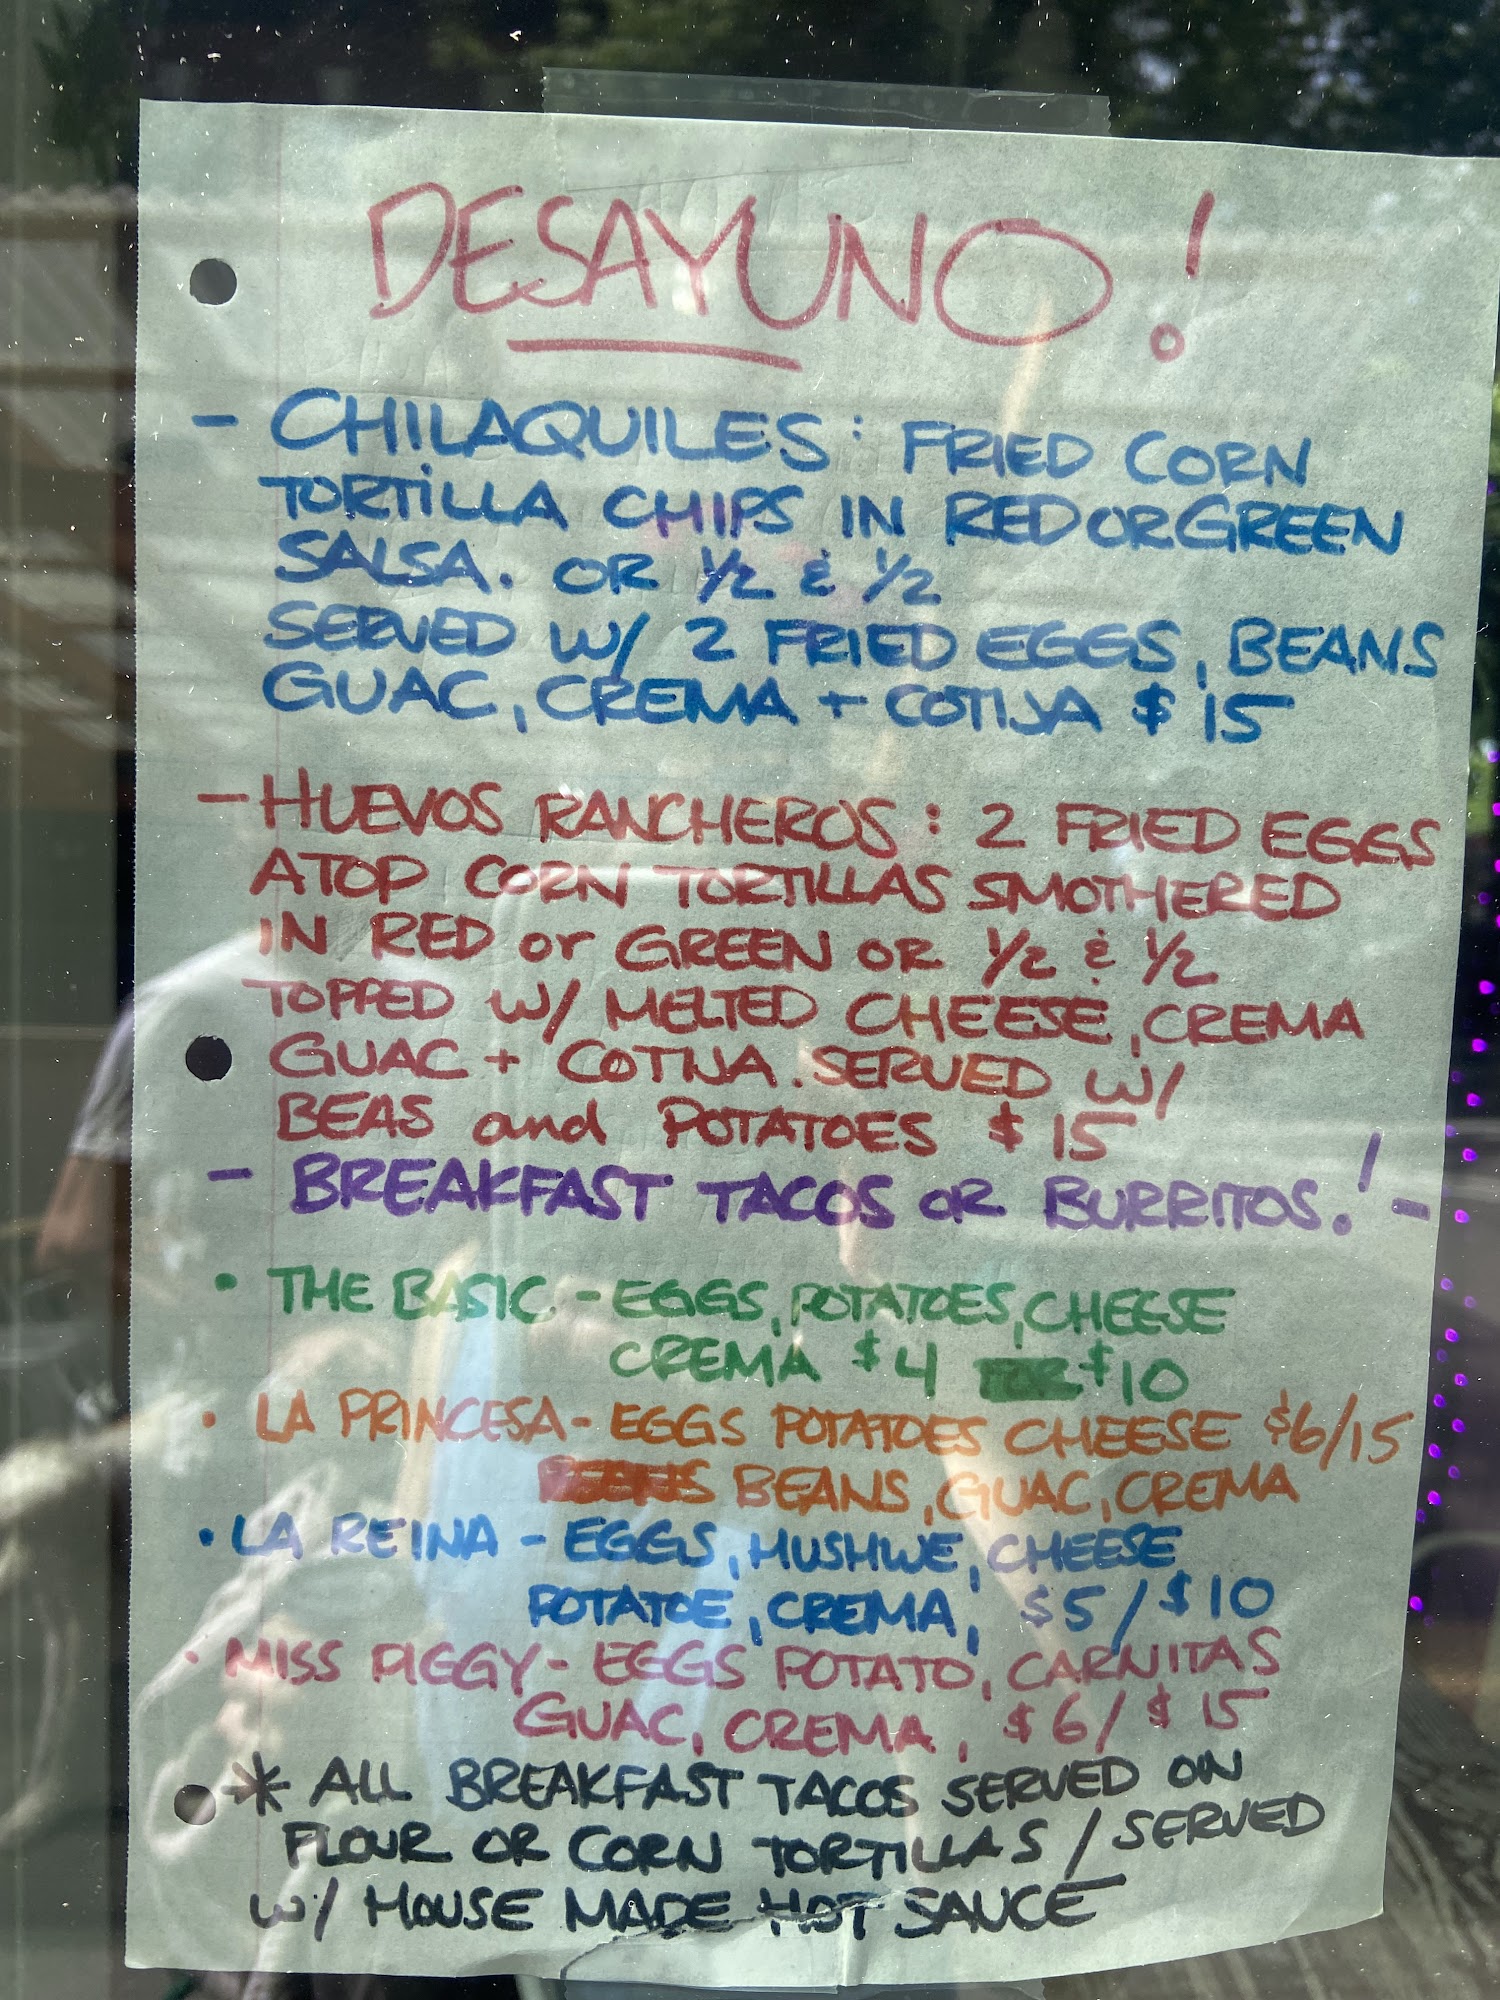 DESAYUNO!
- CHILAQUILES: FRIED CORN
TORTILLA CHIPS IN RED OR GREEN
SALSA. OR 1/2 & 1/2
SERVED W/ 2 FRIED EGGS, BEANS
GUAC, CREMA + COTIJA $15
- HUEVOS RANCHEROS: 2 FRIED EGGS
ATOP CORN TORTILLAS SMOTHERED
IN RED or GREEN OR 1/2 & 1/2
TOPPED W/ MELTED CHEESE, CREMA
GUAC + COTIJA. SERVED W/
BEAS and POTATOES $15
- BREAKFAST TACOS OR BURRITOS! -
• THE BASIC - EGGS, POTATOES, CHEESE
CREMA $4 $10
• LA PRINCESA - EGGS POTATOES CHEESE $6/15
BEANS, GUAC, CREMA
• LA REINA - EGGS, MUSHWE, CHEESE
POTATOE, CREMA, $5/$10
• MISS PIGGY - EGGS POTATO, CARNITAS
GUAC, CREMA, $6/$15
* ALL BREAKFAST TACOS SERVED ON
FLOUR OR CORN TORTILLAS / SERVED
W/ HOUSE MADE HOT SAUCE